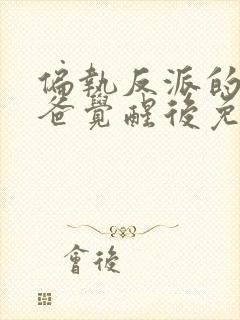 偏執反派的
爸覺醒後免
會後